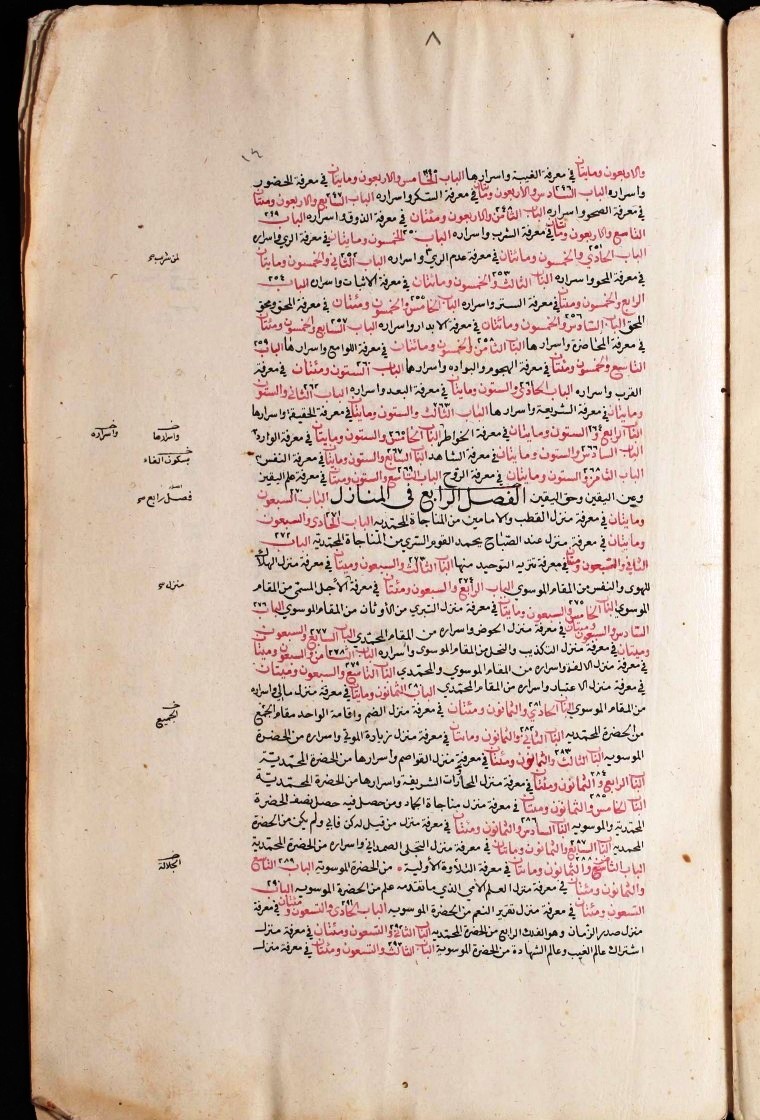 ٨
١٤
والاربعون ومايتان في معرفة الغيبة واسرارها الباب ٢٤٥ الخامس والاربعون ومايتان في معرفة الحضور
واسراره الباب ٢٤٦ السادس والاربعون ومايتان في معرفة السكر واسراره الباب ٢٤٧ السابع والاربعون ومئتان
في معرفة الصحو واسراره الباب ٢٤٨ الثامن والاربعون ومئتان في معرفة الذوق واسراره الباب ٢٤٩
التاسع والاربعون ومئتان في معرفة الشرب واسراره الباب ٢٥٠ الخمسون ومايتان في معرفة الري واسراره
الباب ٢٥١ الحادي والخمسون ومايتان في معرفة عدم الري واسراره الباب ٢٥٢ الثاني والخمسون ومايتان
لمن شرب صح
في معرفة المحو واسراره الباب ٢٥٣ الثالث والخمسون ومايتان في معرفة الاثبات واسراره الباب ٢٥٤
الرابع والخمسون ومئتان في معرفة الستر واسراره الباب ٢٥٥ الخامس والخمسون ومئتان في معرفة المحق ومحق
المحق الباب ٢٥٦ السادس والخمسون ومائتان في معرفة الابدار واسراره الباب ٢٥٧ السابع والخمسون ومئتان
في معرفة المحاضرة واسرارها الباب ٢٥٨ الثامن والخمسون ومائتان في معرفة اللوامع واسرارها الباب ٢٥٩
التاسع والخمسون ومئتان في معرفة الهجوم والبواده واسرارها الباب ٢٦٠ الستون ومئتان في معرفة
القرب واسراره الباب ٢٦١ الحادي والستون ومايتان في معرفة البعد واسراره الباب ٢٦٢ الثاني والستون
ومايتان في معرفة الشريعة واسرارها الباب ٢٦٣ الثالث والستون ومايتان في معرفة الحقيقة واسرارها
الباب ٢٦٤ الرابع والستون ومايتان في معرفة الخواطر الباب ٢٦٥ الخامس والستون ومايتان في معرفة الوارد
واسرارها واسراره
الباب ٢٦٦ السادس والستون ومايتان في معرفة الشاهد الباب ٢٦٧ السابع والستون ومايتان في معرفة النفس
بسكون الفاء
الباب ٢٦٨ الثامن والستون ومايتان في معرفة الروح الباب ٢٦٩ التاسع والستون ومايتان في معرفة علم اليقين
وعين اليقين وحق اليقين الفصل الرابع في المنازل الباب ٢٧٠ السبعون
فصل رابع صح
ومايتان في معرفة منزل القطب والامامين من المناجاة المحمدية الباب ٢٧١ الحادي والسبعون
ومايتان في معرفة منزل عند الصباح يحمد القوم السري من المناجاة المحمدية الباب ٢٧٢
الثاني والسبعون ومئتان في معرفة تنزيه التوحيد منها الباب ٢٧٣ الثالث والسبعون وميتان في معرفة منزل الهلاك
للهوى والنفس من المقام الموسوي الباب ٢٧٤ الرابع والسبعون ومئتان في معرفة الأجل المسمى من المقام
منزل صح
الموسوي الباب ٢٧٥ الخامس والسبعون ومايتان في معرفة منزل التبري من الأوثان من المقام الموسوي الباب ٢٧٦
السادس والسبعون وميتان في معرفة منزل الحوض واسراره من المقام المحمدي الباب ٢٧٧ السابع والسبعون
وميتان في معرفة منزل التكذيب والبخل من المقام الموسوي واسراره الباب ٢٧٨ الثامن والسبعون وميتان
في معرفة منزل الالفة واسراره من المقام الموسوي والمحمدي الباب ٢٧٩ التاسع والسبعون وميتان
في معرفة منزل الاعتبار واسراره من المقام المحمدي الباب ٢٨٠ الثمانون ومايتان في معرفة منزل مالي واسراره
من المقام الموسوي الباب ٢٨١ الحادي والثمانون ومئتان في معرفة منزل الضم واقامة الواحد مقام الجميع
الجميع
من الحضرة المحمدية الباب ٢٨٢ الثاني والثمانون ومايتان في معرفة منزل زيارة الموتى واسراره من الحضرة
الموسوية الباب ٢٨٣ الثالث والثمانون ومئتان في معرفة منزل القواصم واسرارها من الحضرة المحمدية
الباب ٢٨٤ الرابع والثمانون ومئتان في معرفة منزل المجارات الشريفة واسرارها من الحضرة المحمدية
الباب ٢٨٥ الخامس والثمانون ومئتان في معرفة منزل مناجاة الجماد ومن حصل فيه حصل نصف الحضرة
المحمدية والموسوية الباب ٢٨٦ السادس والثمانون ومئتان في معرفة منزل من قيل له كن فأبى ولم يكن من الحضرة
المحمدية الباب ٢٨٧ السابع والثمانون ومايتان في معرفة منزل التجلي الصمداني واسراره من الحضرة المحمدية
الباب ٢٨٨ الثامن والثمانون ومايتان في معرفة التلاوة الأولية من الحضرة الموسوية الباب ٢٨٩ التاسع
الجلالة
والثمانون ومئتان في معرفة منزل العلم الأمي الذي ما تقدمه علم من الحضرة الموسوية الباب ٢٩٠
التسعون ومئتان في معرفة منزل تقرير النعم من الحضرة الموسوية الباب ٢٩١ الحادي والتسعون ومئتان في معرفة
منزل صدر الزمان وهو الفلك الرابع من الحضرة المحمدية الباب ٢٩٢ الثاني والتسعون ومئتان في معرفة منزل
اشتراك عالم الغيب وعالم الشهادة من الحضرة الموسوية الباب ٢٩٣ الثالث والتسعون ومئتان في معرفة منزل